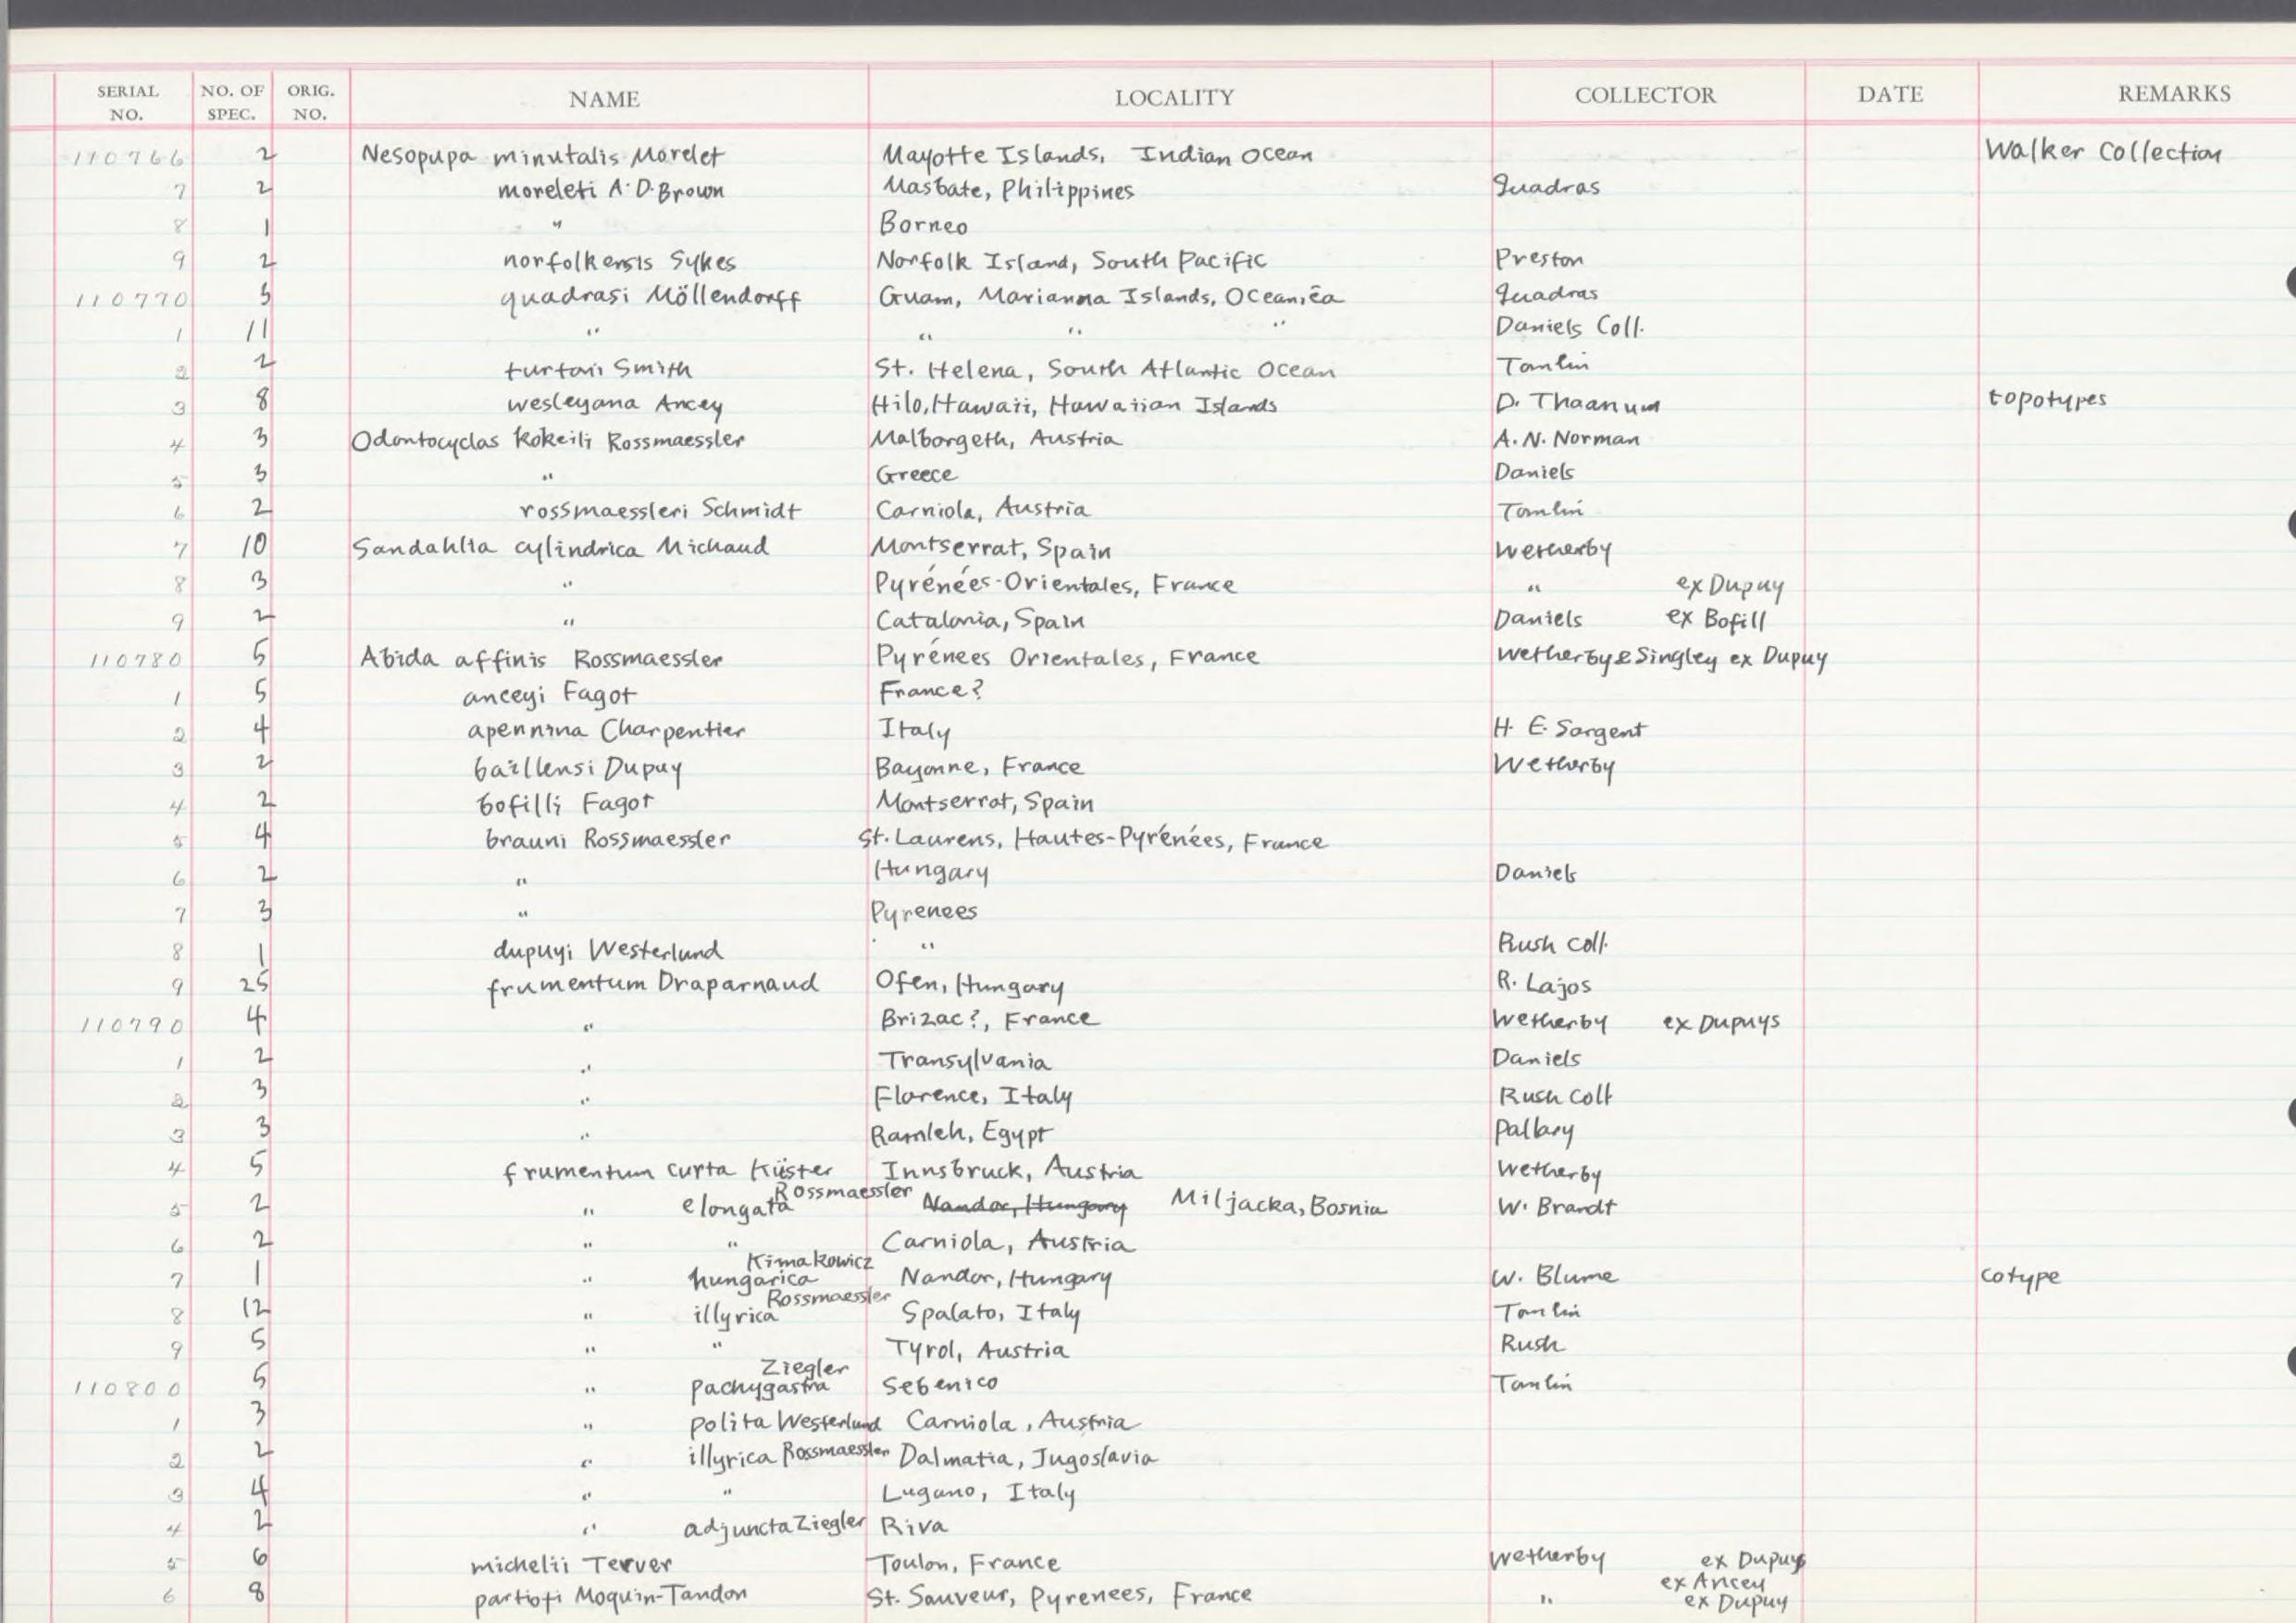 SERIAL NO. NO. OF SPEC. ORIG. NO. NAME LOCALITY COLLECTOR DATE REMARKS
110766 2 Nesopupa minutalis Morelet Mayotte Islands, Indian Ocean Walker Collection
7 2 moreleti A.D. Brown Masbate, Philippines Quadras
8 1 " Borneo
9 2 norfolkensis Sykes Norfolk Island, South Pacific Preston
110770 5 quadrasi Möllendorff Guam, Marianna Islands, Oceanica Quadras
1 11 " " " " Daniels Coll.
2 2 turtoni Smith St. Helena, South Atlantic Ocean Tomlin
3 8 wesleyana Ancey Hilo, Hawaii, Hawaiian Islands D. Thaanum topotypes
4 3 Odontocyclas kokeili Rossmaessler Malborgeth, Austria A.N. Norman
5 3 " Greece Daniels
6 2 rossmaessleri Schmidt Carniola, Austria Tomlin
7 10 Sandahlia cylindrica Michaud Montserrat, Spain Wetherby
8 3 " Pyrénées-Orientales, France " ex Dupuy
9 2 " Catalonia, Spain Daniels ex Bofill
110780 5 Abida affinis Rossmaessler Pyrénees Orientales, France Wetherby & Singley ex Dupuy
1 5 anceyi Fagot France?
2 4 apennina Charpentier Italy H. E. Sargent
3 2 baillensi Dupuy Bayonne, France Wetherby
4 2 bofilli Fagot Montserrat, Spain
5 4 brauni Rossmaessler St. Laurens, Hautes-Pyrénées, France
6 2 " Hungary Daniels
7 3 " Pyrenees
8 1 dupuyi Westerlund " Rush Coll.
9 25 frumentum Draparnaud Ofen, Hungary R. Lajos
110790 4 " Brizac?, France Wetherby ex Dupuys
1 2 " Transylvania Daniels
2 3 " Florence, Italy Rush Coll
3 3 " Ramleh, Egypt Pallary
4 5 frumentum curta Küster Innsbruck, Austria Wetherby
5 2 " elongata Rossmaessler Nandor, Hungary Miljacka, Bosnia W. Brandt
6 2 " " Carniola, Austria
7 1 " hungarica Kimakowicz Nandor, Hungary W. Blume cotype
8 12 " illyrica Rossmaessler Spalato, Italy Tomlin
9 5 " " Tyrol, Austria Rush
110800 5 " pachygastra Ziegler Sebenico Tomlin
1 3 " polita Westerlund Carniola, Austria
2 2 " illyrica Rossmaessler Dalmatia, Jugoslavia
3 4 " " Lugano, Italy
4 2 " adjuncta Ziegler Riva
5 6 michelii Terver Toulon, France Wetherby ex Dupuys
6 8 partioti Moquin-Tandon St. Sauveur, Pyrenees, France " ex Ancey ex Dupuy